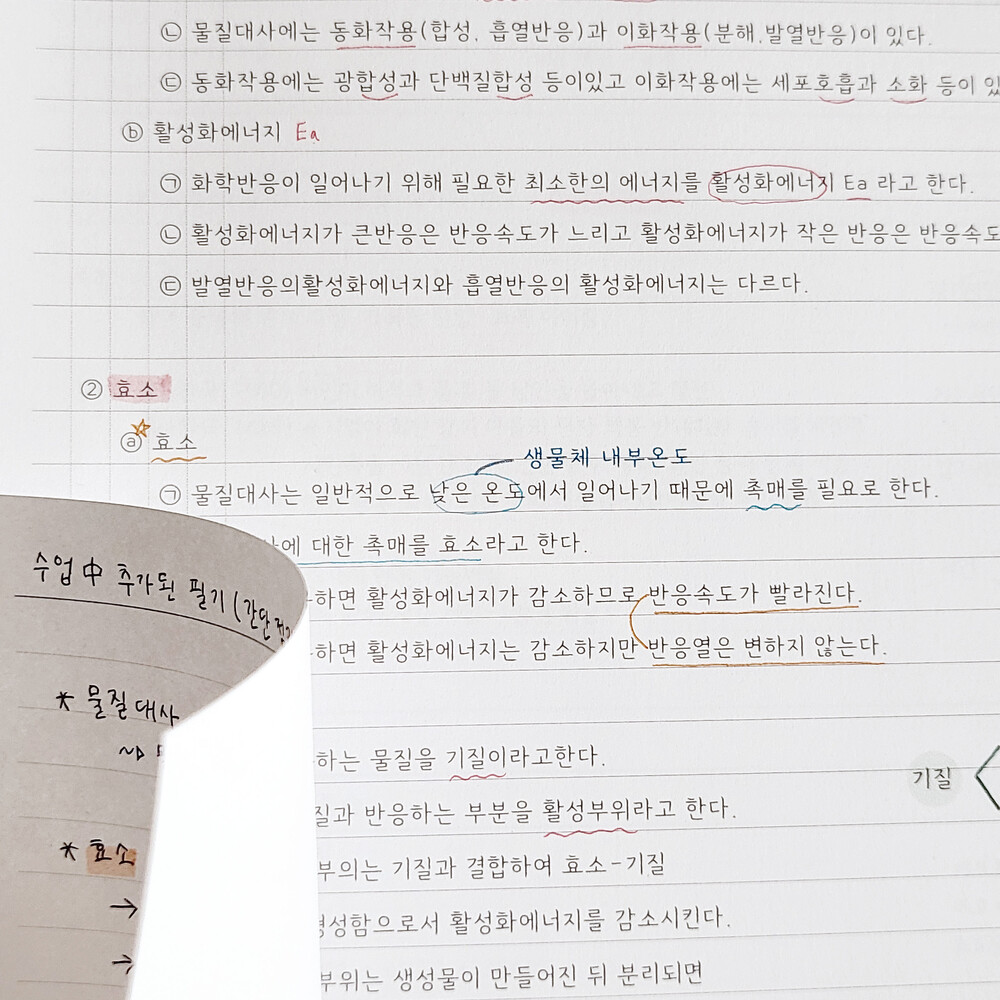 ㉡ 물질대사에는 동화작용(합성, 흡열반응)과 이화작용(분해,발열반응)이 있다.
㉢ 동화작용에는 광합성과 단백질합성 등이있고 이화작용에는 세포호흡과 소화 등이
ⓑ 활성화에너지 Ea
㉠ 화학반응이 일어나기 위해 필요한 최소한의 에너지를 활성화에너지 Ea 라고 한다.
㉡ 활성화에너지가 큰반응은 반응속도가 느리고 활성화에너지가 작은 반응은 반응속도
㉢ 발열반응의활성화에너지와 흡열반응의 활성화에너지는 다르다.
② 효소
ⓐ 효소
생물체 내부온도
㉠ 물질대사는 일반적으로 낮은 온도에서 일어나기 때문에 촉매를 필요로 한다.
에 대한 촉매를 효소라고 한다.
하면 활성화에너지가 감소하므로 반응속도가 빨라진다.
하면 활성화에너지는 감소하지만 반응열은 변하지 않는다.
하는 물질을 기질이라고한다.
기질
질과 반응하는 부분을 활성부위라고 한다.
부의는 기질과 결합하여 효소-기질
형성함으로서 활성화에너지를 감소시킨다.
부위는 생성물이 만들어진 뒤 분리되면
수업 中 추가된 필기 (간단
* 물질대사
* 효소
→
→